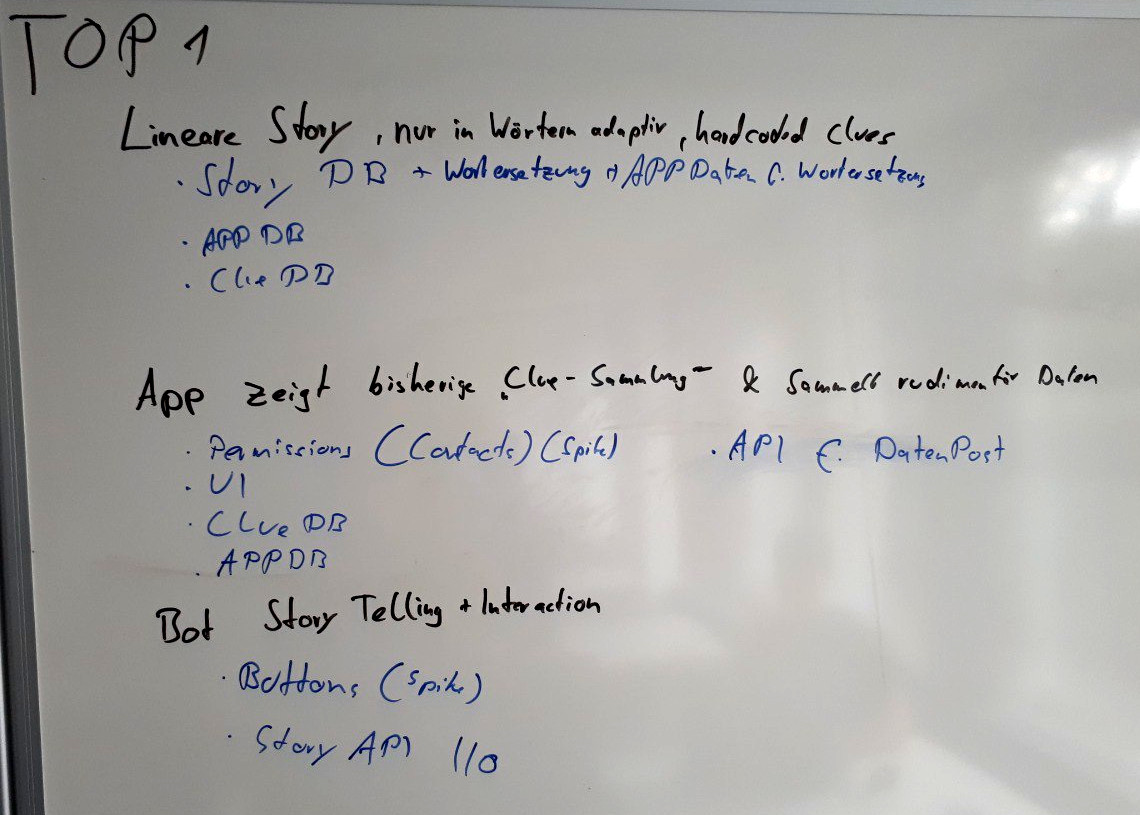 TOP 1
Lineare Story, nur in Wörtern adaptiv, hardcoded Clues
· Story DB + Wortersetzung APP Daten f. Wortersetzung
· APP DB
· Clue DB
App zeigt bisherige "Clue-Sammlung" & sammelt rudimentär Daten
· Permissions (Contacts) (Spike) · API f. DatenPost
· UI
· Clue DB
· APP DB
Bot Story Telling + Interaction
· Buttons (Spike)
· Story API I/O